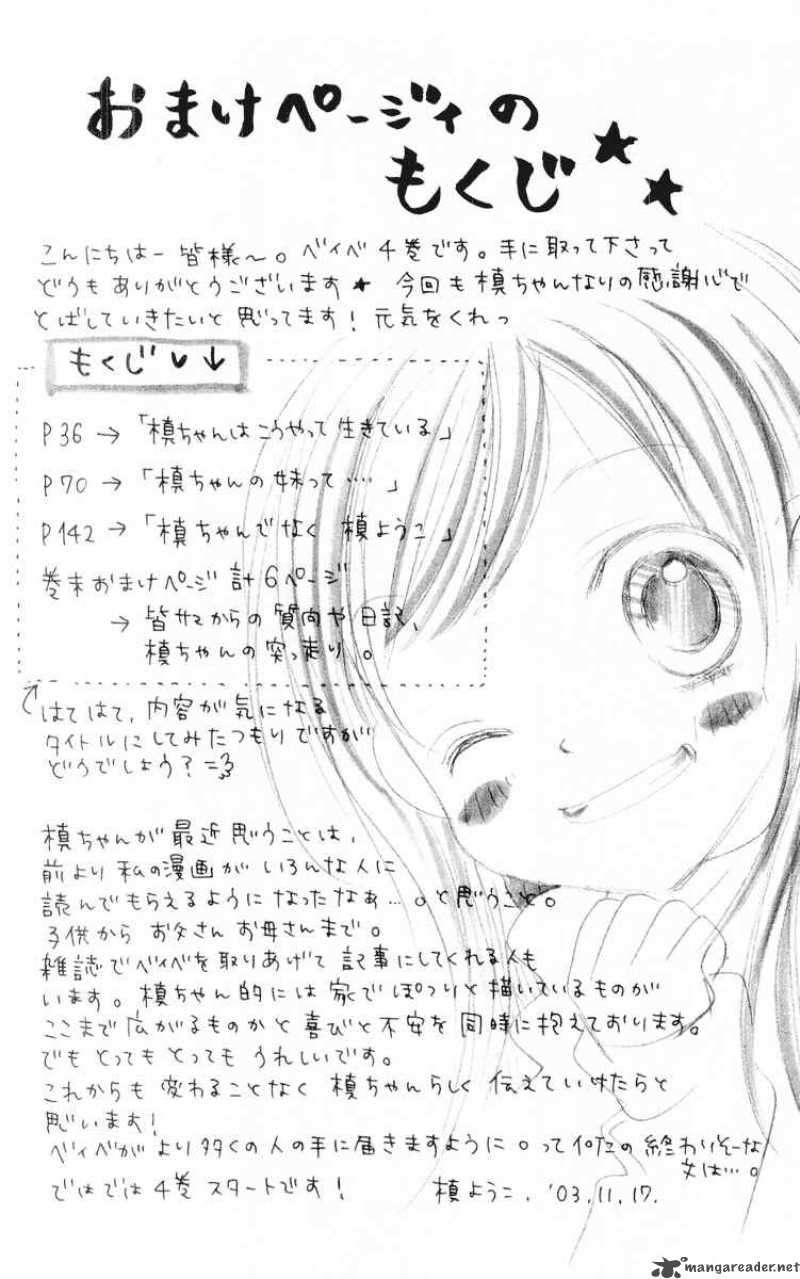 おまけページィの
もくじ★★
こんにちはー皆様〜。ベイベ4巻です。手に取って下さって
どうもありがとうございます★ 今回も槙ちゃんなりの感謝心で
とばしていきたいと思ってます！元気をくれっ
もくじ♥↓
P36→「槙ちゃんはこうやって生きている」
P70→「槙ちゃんの妹って…‥」
P142→「槙ちゃんでなく 槙ようこ」
巻末おまけページ 計6ページ
→皆サマからの質問や日記、
槙ちゃんの突っ走り。
はてはて、内容が気になる
タイトルにしてみたつもりですが
どうでしょう？
槙ちゃんが最近思うことは、
前より私の漫画がいろんな人に
読んでもらえるようになったなぁ…。と思うこと。
子供からお父さんお母さんまで。
雑誌でベイベを取りあげて記事にしてくれる人も
います。槙ちゃん的には家でぽつりと描いているものが
ここまで広がるものかと喜びと不安を同時に抱えております。
でもとってもとってもうれしいです。
これからも変わることなく槙ちゃんらしく伝えていけたらと
思います！
ベイベがより多くの人の手に届きますように。って何だこの終わりそーな
文は…。
ではでは4巻スタートです！ 槙ようこ. '03.11.17.
mangareader.net